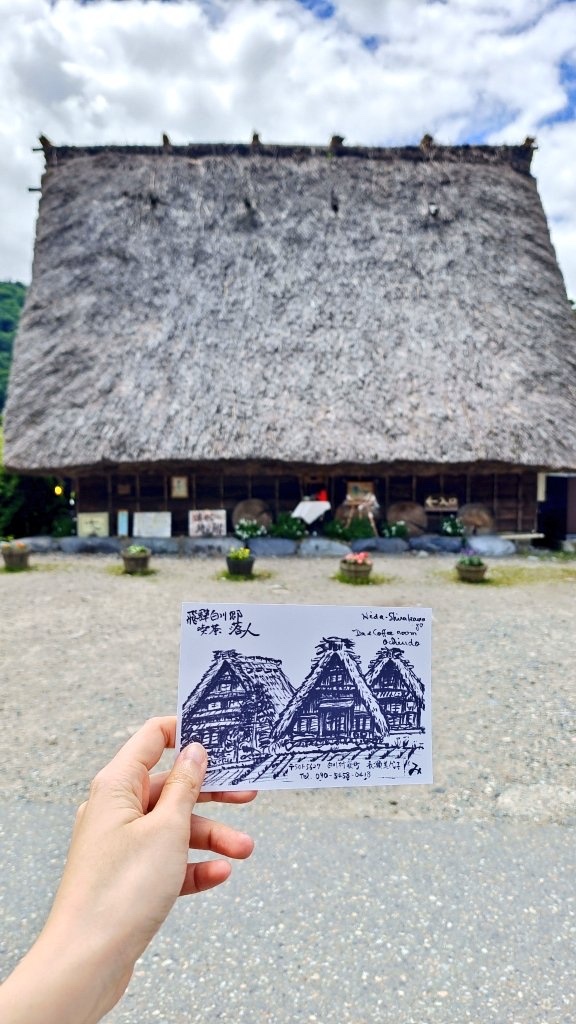 入口
飛騨白川郷
喫茶 落人
Hida-Shirakawa
go
Tea & Coffee room
Ochiudo
〒501-5627 白川村荻町
Tel. 090-5458-0418